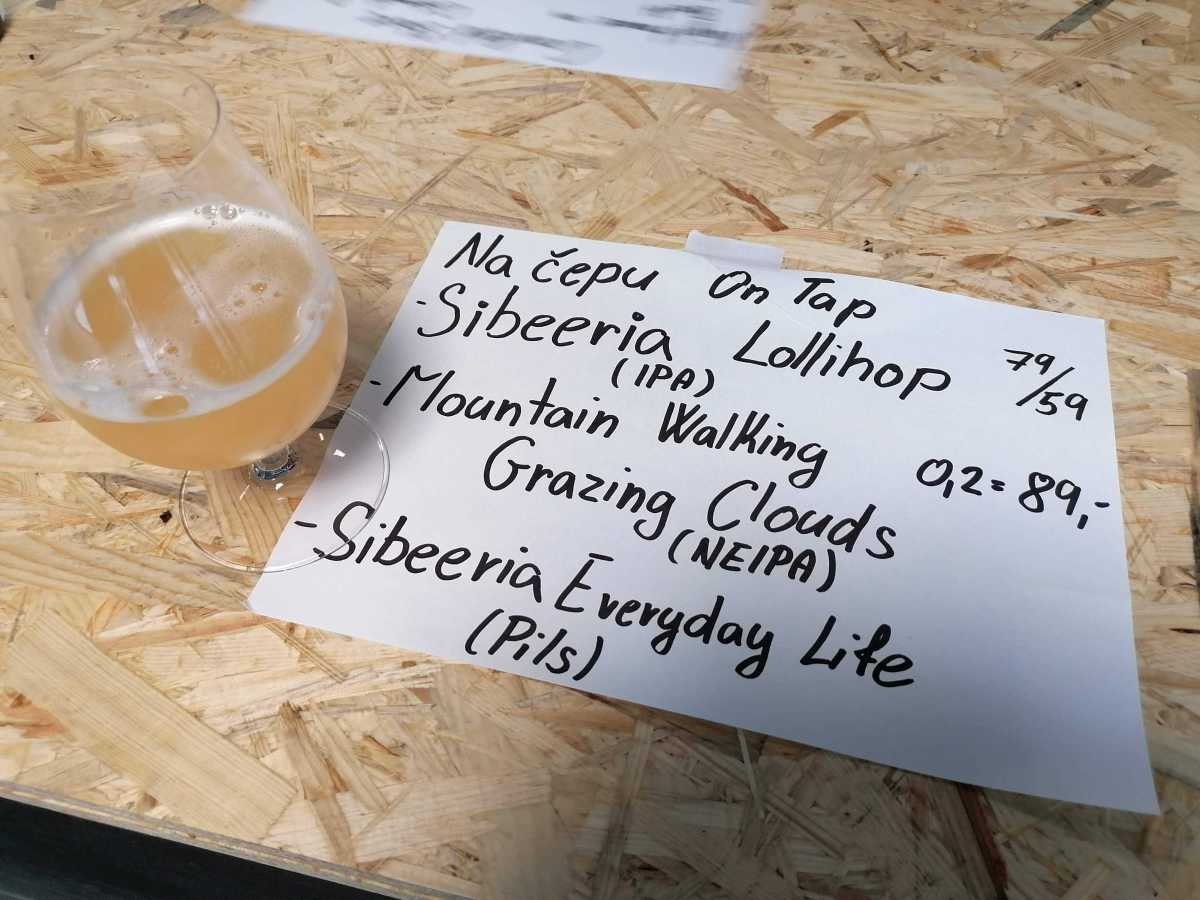 Na čepu On Tap
- Sibeeria Lollihop 79/59
(IPA)
- Mountain Walking
Grazing Clouds 0,2=89,-
(NEIPA)
- Sibeeria Everyday Life
(Pils)